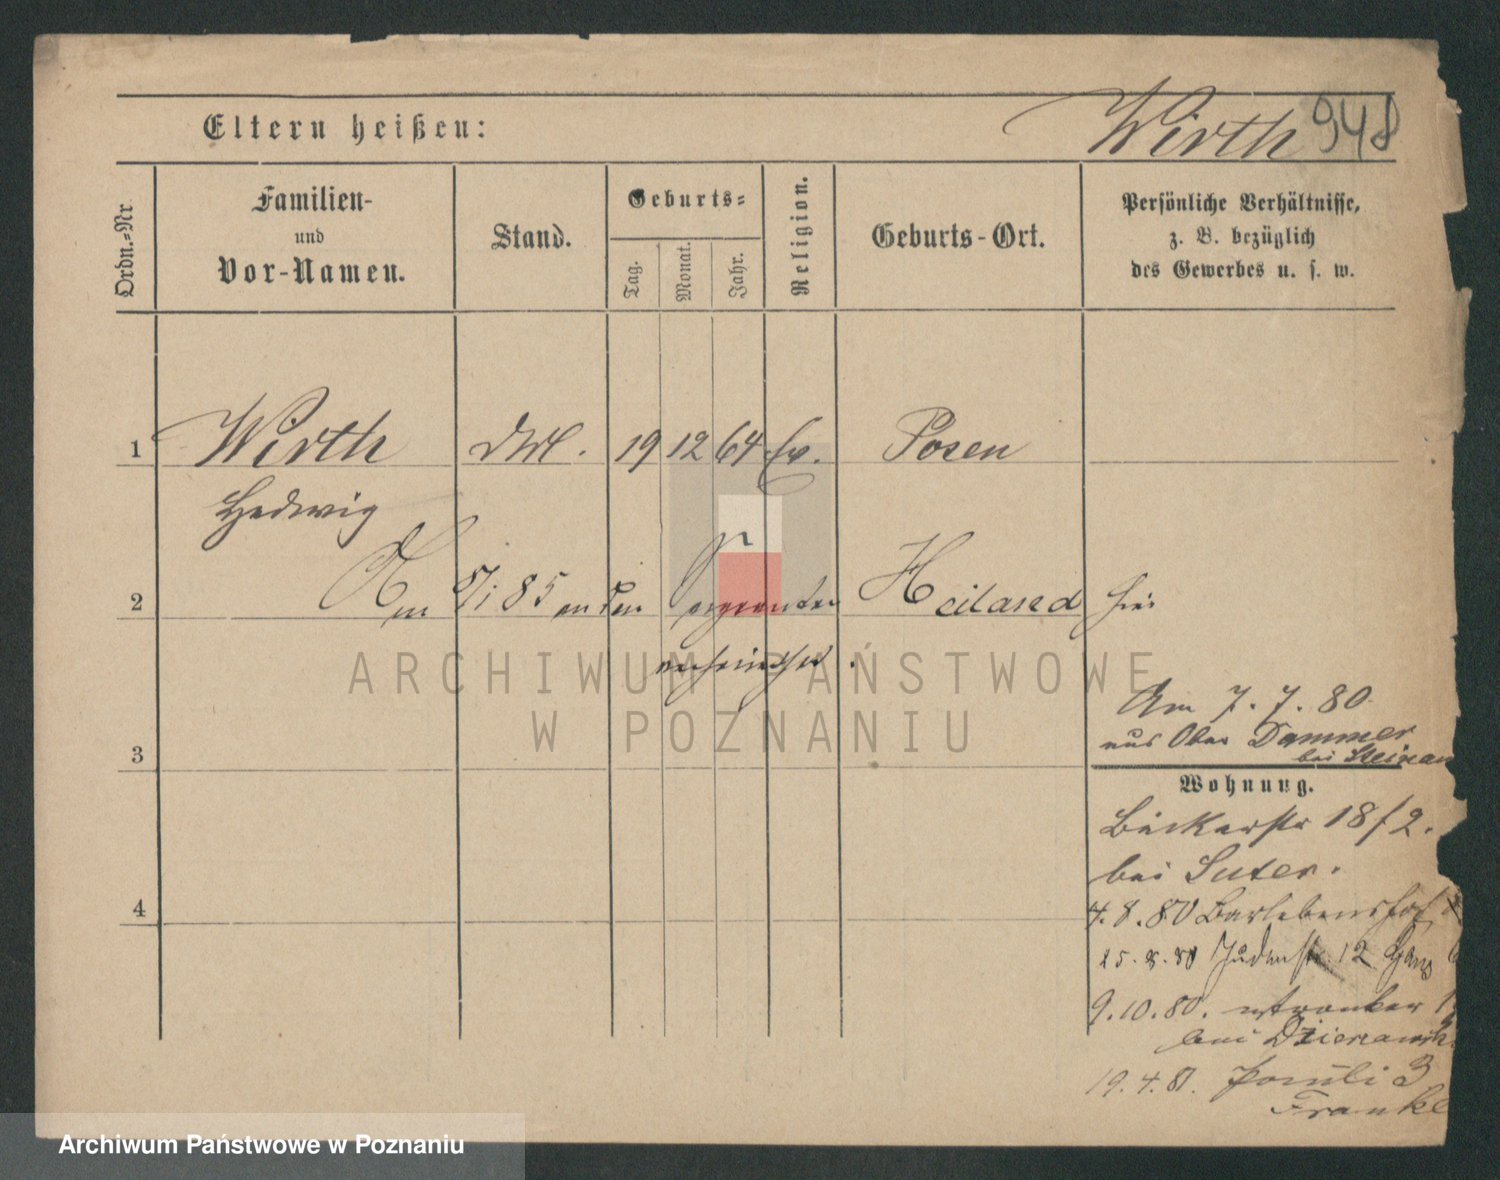 Eltern heißen:
Wirth 948
Ordn.-Nr
Familien-
und
Vor-Namen.
Stand.
Geburts-
Tag.
Monat.
Jahr.
Religion.
Geburts-Ort.
Persönliche Verhältnisse,
z. B. bezüglich
des Gewerbes u. s. w.
1 Wirth 19 12 64 Ev. Posen
Hedwig
2 Am 85 an den Heiland hier
verheirathet.
ARCHIWUM PAŃSTWOWE
W POZNANIU
Am 7. 7. 80
aus Ober Dammer
bei Steinau
3
Wohnung.
Bäckerstr 18/2.
bei Suter.
4. 8. 80 Barlebenshof
4
25. 8. 80 Judenstr. 12
9. 10. 80.
bei
19. 4. 81. Pauli 3
Franke
Archiwum Państwowe w Poznaniu